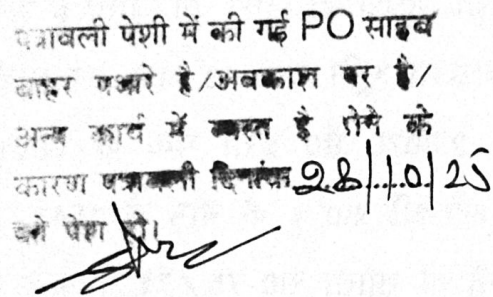 पत्रावली पेशी में की गई PO साहब
बाहर पधारे है/अवकाश पर है/
अन्य कार्य में व्यस्त है होने के
कारण पत्रावली दिनांक 28/10/25
को पेश हो।